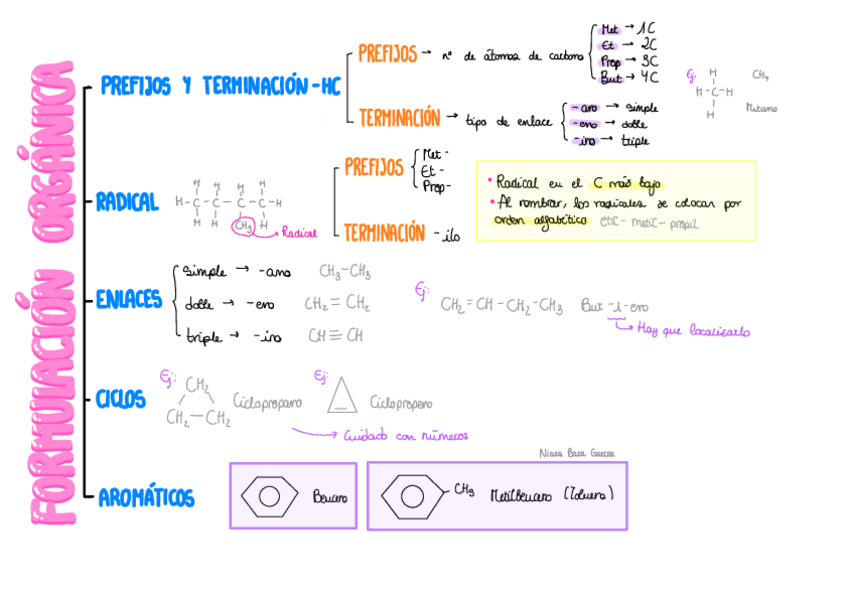 FORMULACIÓN ORGÁNICA
PREFIJOS Y TERMINACIÓN-HC
PREFIJOS → nº de átomos de carbono
Met → 1C
Et → 2C
Prop → 3C
But → 4C
TERMINACIÓN → tipo de enlace
-ano → simple
-eno → doble
-ino → triple
Ej:
H
H-C-H
H
CH4
Metano
RADICAL
H H H H
H-C-C-C-C-H
H H CH3 H
→ Radical
PREFIJOS
Met-
Et-
Prop-
TERMINACIÓN -ilo
• Radical en el C más bajo
• Al nombrar, los radicales se colocan por
orden alfabético etil- metil- propil
ENLACES
simple → -ano CH3-CH3
doble → -eno CH2=CH2
triple → -ino CH≡CH
Ej: CH2=CH-CH2-CH3 But-1-eno
→ Hay que localizarlo
CICLOS
Ej: CH2
CH2-CH2 Ciclopropano
Ej: Ciclopropeno
→ Cuidado con números
Baca
AROMÁTICOS
Benceno
CH3 Metilbenceno (Tolueno)